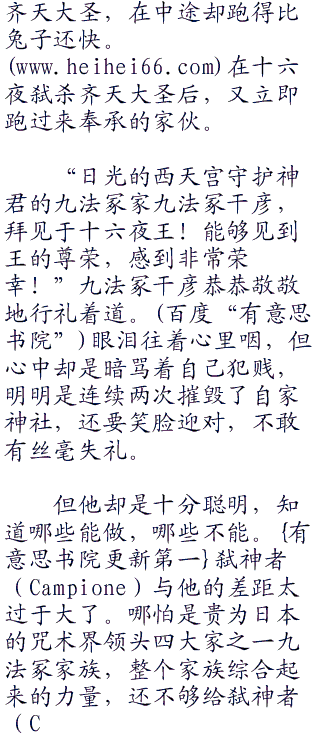 齐天大圣，在中途却跑得比
兔子还快。
(www.heihei66.com)在十六
夜弑杀齐天大圣后，又立即
跑过来奉承的家伙。
“日光的西天宫守护神
君的九法冢家九法冢干彦，
拜见于十六夜王！能够见到
王的尊荣，感到非常荣
幸！”九法冢干彦恭恭敬敬
地行礼着道。(百度“有意思
书院”)眼泪往着心里咽，但
心中却是暗骂着自己犯贱，
明明是连续两次摧毁了自家
神社，还要笑脸迎对，不敢
有丝毫失礼。
但他却是十分聪明，知
道哪些能做，哪些不能。{有
意思书院更新第一}弑神者
（Campione）与他的差距太
过于大了。哪怕是贵为日本
的咒术界领头四大家之一九
法冢家族，整个家族综合起
来的力量，还不够给弑神者
（C